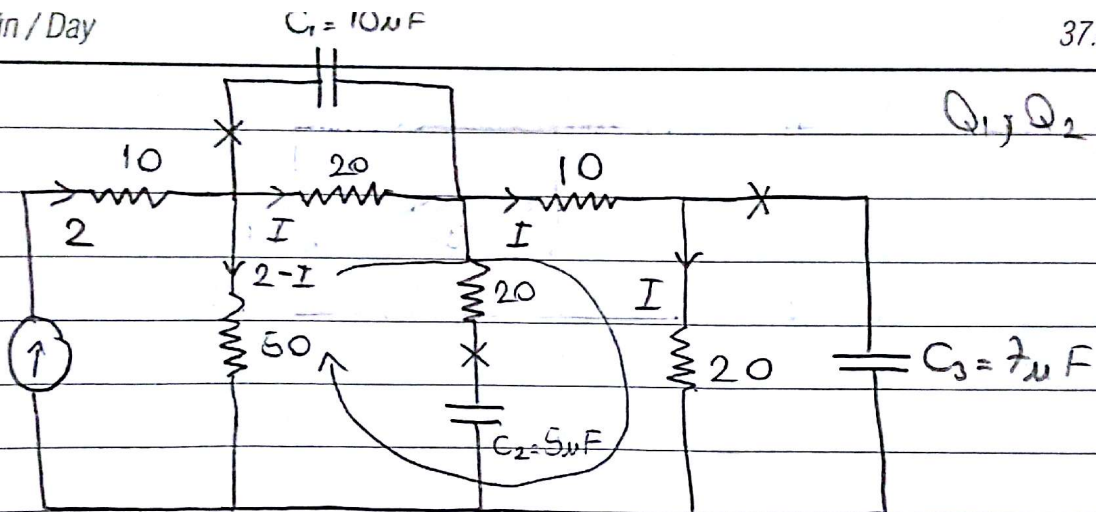 in / Day
C₁ = 10μF
37.
Q₁, Q₂
10
20
10
2
I
I
2-I
20
I
50
20
C₃ = 7μF
C₂ = 5μF